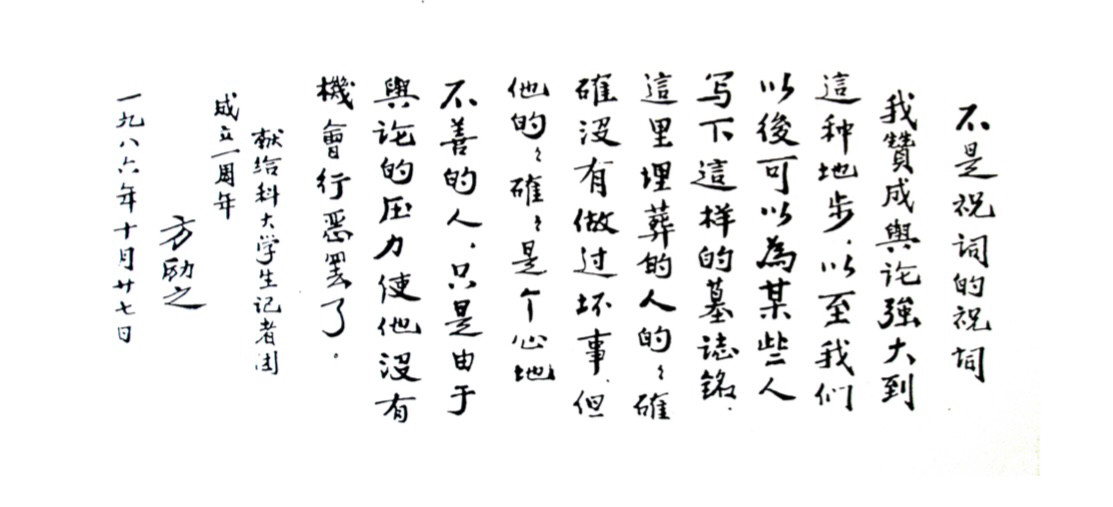 不是祝词的祝词
我贊成輿论強大到
這种地步.以至我們
以後可以為某些人
写下這样的墓誌銘.
這里埋葬的人的〻確
確没有做过坏事.但
他的〻確〻是个心地
不善的人.只是由于
輿论的压力使他没有
機會行恶罢了.
献给科大学生记者团
成立一周年
方励之
一九八六年十月廿七日